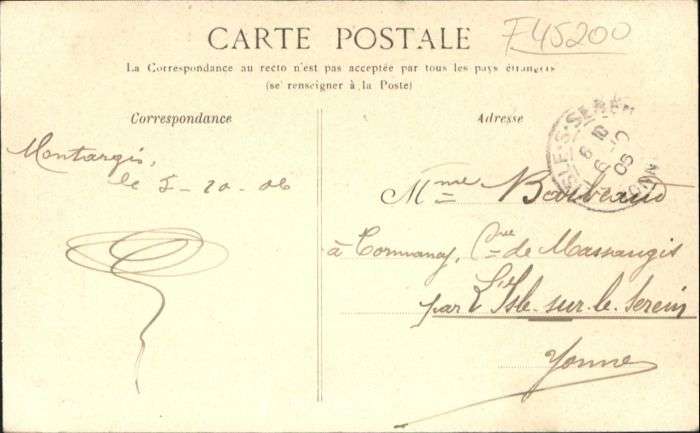 CARTE POSTALE
F45200
La Correspondance au recto n'est pas acceptée par tous les pays étrangers
(se renseigner à la Poste)
Correspondance
Adresse
Montargis,
le 5-10-06
Mme
à Cormanay, Cne de Massangis
par L'Isle-sur-le-Serein
Yonne